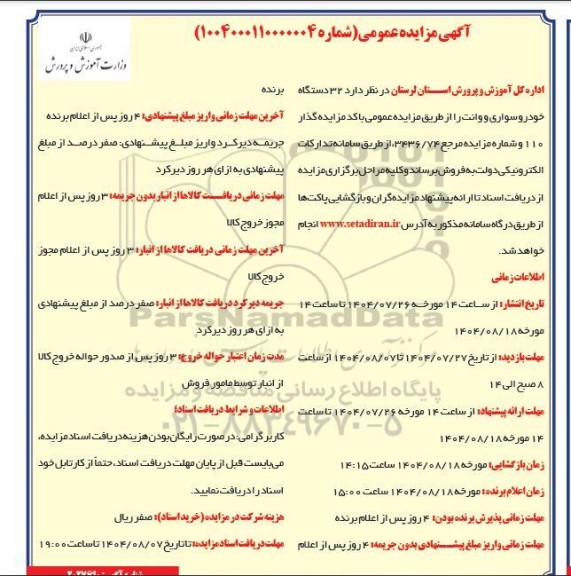 آگهی مزایده عمومی (شماره ۱۰۰۴۰۰۰۱۱۰۰۰۰۰۰۴)
جمهوری اسلامی ایران
وزارت آموزش و پرورش
اداره کل آموزش و پرورش استان لرستان در نظر دارد ۳۲ دستگاه
خودرو سواری و وانت را از طریق مزایده عمومی با کد مزایده گذار
۱۱۰ و شماره مزایده مرجع ۳۴۳۶/۷۴، از طریق سامانه تدارکات
الکترونیکی دولت به فروش برساند و کلیه مراحل برگزاری مزایده
از دریافت اسناد تا ارائه پیشنهاد مزایده گران و بازگشایی پاکت‌ها
از طریق درگاه سامانه مذکور به آدرس www.setadiran.ir انجام
خواهد شد.
اطلاعات زمانی
تاریخ انتشار: از ساعت ۱۴ مورخه ۱۴۰۴/۰۷/۲۶ تا ساعت ۱۴
مورخه ۱۴۰۴/۰۸/۱۸
مهلت بازدید: از تاریخ ۱۴۰۴/۰۷/۲۷ تا ۱۴۰۴/۰۸/۰۷ از ساعت
۸ صبح الی ۱۴
مهلت ارائه پیشنهاد: از ساعت ۱۴ مورخه ۱۴۰۴/۰۷/۲۶ تا ساعت
۱۴ مورخه ۱۴۰۴/۰۸/۱۸
زمان بازگشایی: مورخه ۱۴۰۴/۰۸/۱۸ ساعت ۱۴:۱۵
زمان اعلام برنده: مورخه ۱۴۰۴/۰۸/۱۸ ساعت ۱۵:۰۰
مهلت زمانی پذیرش برنده بودن: ۴ روز پس از اعلام برنده
مهلت زمانی واریز مبلغ پیشنهادی بدون جریمه: ۴ روز پس از اعلام
برنده
آخرین مهلت زمانی واریز مبلغ پیشنهادی: ۴ روز پس از اعلام برنده
جریمه دیرکرد واریز مبلغ پیشنهادی: صفر درصد از مبلغ
پیشنهادی به ازای هر روز دیرکرد
مهلت زمانی دریافت کالاها از انبار بدون جریمه: ۳ روز پس از اعلام
مجوز خروج کالا
آخرین مهلت زمانی دریافت کالاها از انبار: ۳ روز پس از اعلام مجوز
خروج کالا
جریمه دیرکرد دریافت کالاها از انبار: صفر درصد از مبلغ پیشنهادی
به ازای هر روز دیرکرد
مدت زمان اعتبار حواله خروج: ۳ روز پس از صدور حواله خروج کالا
از انبار توسط مامور فروش
اطلاعات و شرایط دریافت اسناد:
کاربر گرامی: در صورت رایگان بودن هزینه دریافت اسناد مزایده،
می‌بایست قبل از پایان مهلت دریافت اسناد، حتماً از کارتابل خود
اسناد را دریافت نمایید.
هزینه شرکت در مزایده (خرید اسناد): صفر ریال
مهلت دریافت اسناد مزایده: تا تاریخ ۱۴۰۴/۰۸/۰۷ تا ساعت ۱۹:۰۰
ParsNamadData
پایگاه اطلاع رسانی مناقصه و مزایده
۰۲۱-۸۸۳۴۹۶۷۰-۵